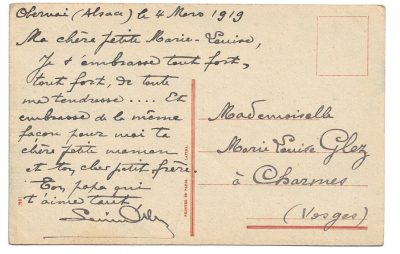 Obernai (Alsace) le 4 Mars 1919
Ma chère petite Marie-Louise,
Je t'embrasse tout fort,
tout fort, de toute
ma tendresse .... Et
embrasse de la même
façon pour moi ta
chère petite maman
et ton cher petit frère.
Ton papa qui
t'aime tant
Mademoiselle
Marie Louise Glez
à Charmes
(Vosges)